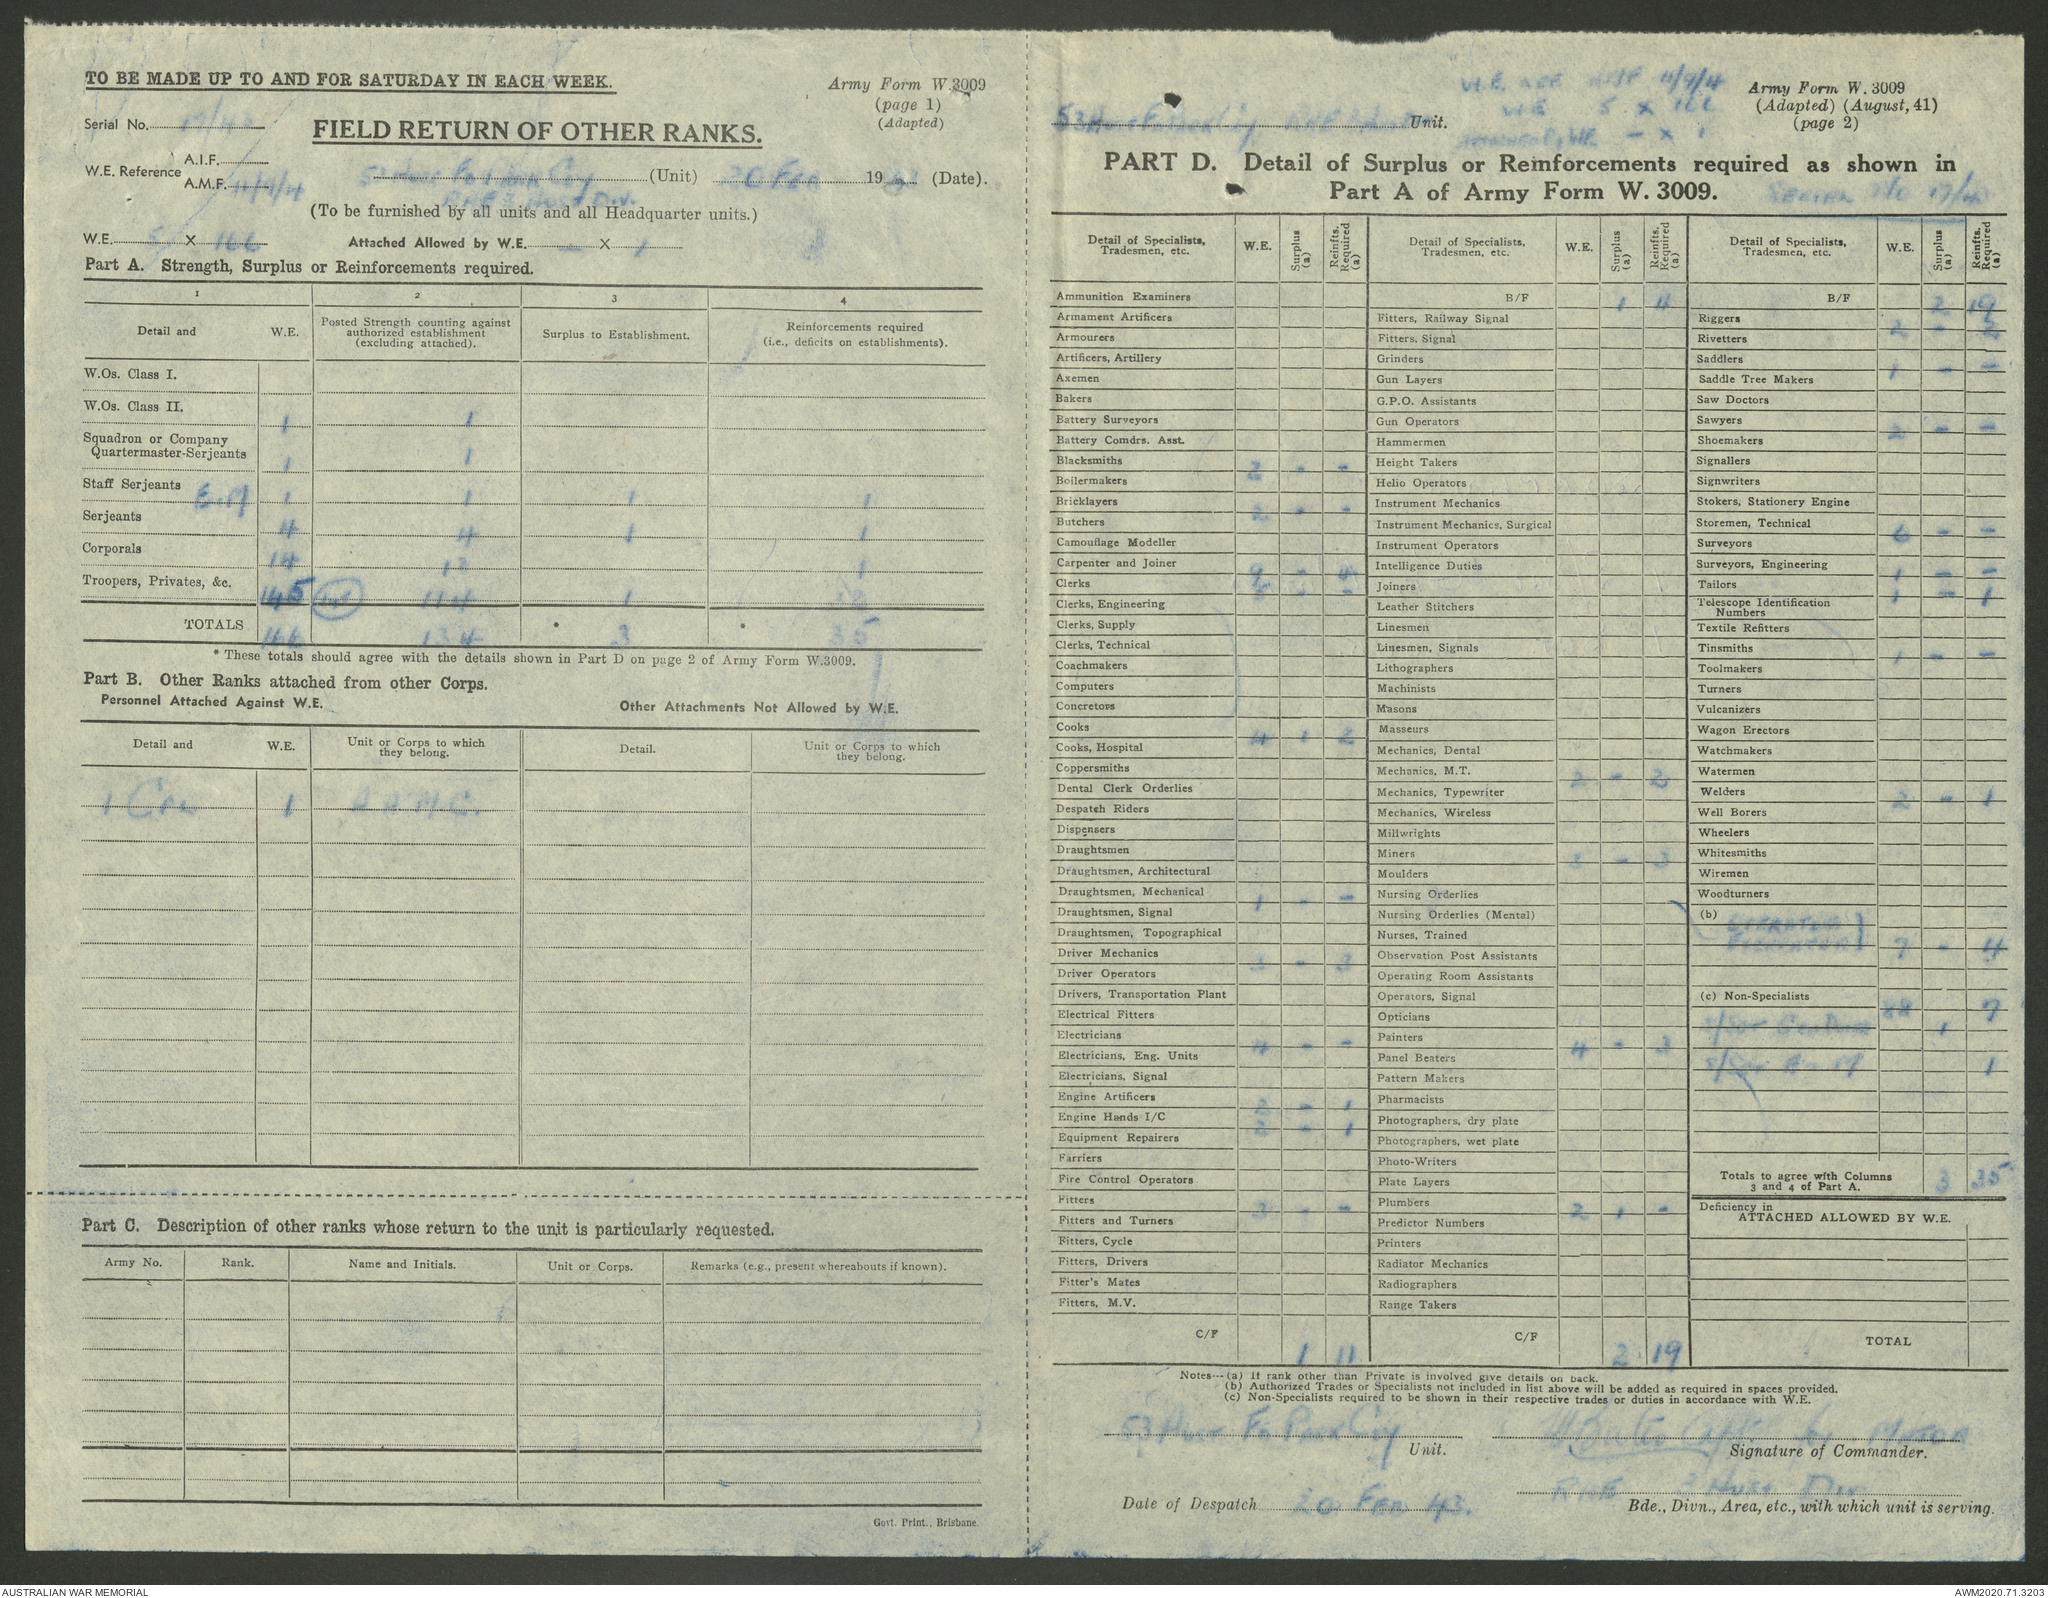 TO BE MADE UP TO AND FOR SATURDAY IN EACH WEEK.
Army Form W.3009
(page 1)
(Adapted)
Serial No. 17/43
FIELD RETURN OF OTHER RANKS.
W.E. Reference
A.I.F.
A.M.F. 4/9/4
53 Aust Fd Park Coy (Unit) 20 Feb 1943 (Date).
RAE 3 Aust Div.
(To be furnished by all units and all Headquarter units.)
W.E. 5 X 166
Attached Allowed by W.E. — X 1
Part A. Strength, Surplus or Reinforcements required.
1 2 3 4
Detail and W.E.
Posted Strength counting against authorized establishment (excluding attached).
Surplus to Establishment.
Reinforcements required (i.e., deficits on establishments).
W.Os. Class I.
W.Os. Class II. 1 1
Squadron or Company Quartermaster-Serjeants 1 1
Staff Serjeants E.M 1 1 1 1
Serjeants 4 4 1 1
Corporals 14 13 1
Troopers, Privates, &c. 145 114 1 32
TOTALS 134 * 3 * 35
* These totals should agree with the details shown in Part D on page 2 of Army Form W.3009.
Part B. Other Ranks attached from other Corps.
Personnel Attached Against W.E.
Other Attachments Not Allowed by W.E.
Detail and W.E.
Unit or Corps to which they belong.
Detail.
Unit or Corps to which they belong.
1 Cpl 1 A A M C.
Part C. Description of other ranks whose return to the unit is particularly requested.
Army No. Rank. Name and Initials. Unit or Corps. Remarks (e.g., present whereabouts if known).
Govt. Print., Brisbane.
W.E. REF AMF 4/9/4
W.E 5 X 166
— X 1
53 Aust Fd Park Coy Unit.
Army Form W. 3009
(Adapted) (August, 41)
(page 2)
PART D. Detail of Surplus or Reinforcements required as shown in
Part A of Army Form W. 3009.
Serial No 17/43
Detail of Specialists, Tradesmen, etc. W.E. Surplus (a) Reinfts. Required (a)
Ammunition Examiners
Armament Artificers
Armourers
Artificers, Artillery
Axemen
Bakers
Battery Surveyors
Battery Comdrs. Asst.
Blacksmiths 2 - -
Boilermakers
Bricklayers 2 - -
Butchers
Camouflage Modeller
Carpenter and Joiner 9 - 4
Clerks
Clerks, Engineering
Clerks, Supply
Clerks, Technical
Coachmakers
Computers
Concretors
Cooks 4 1 2
Cooks, Hospital
Coppersmiths
Dental Clerk Orderlies
Despatch Riders
Dispensers
Draughtsmen
Draughtsmen, Architectural
Draughtsmen, Mechanical 1 - -
Draughtsmen, Signal
Draughtsmen, Topographical
Driver Mechanics 3 - 3
Driver Operators
Drivers, Transportation Plant
Electrical Fitters
Electricians 4 - -
Electricians, Eng. Units
Electricians, Signal
Engine Artificers 2 - 1
Engine Hands I/C 2 - 1
Equipment Repairers
Farriers
Fire Control Operators
Fitters 3 - -
Fitters and Turners
Fitters, Cycle
Fitters, Drivers
Fitter's Mates
Fitters, M.V.
C/F 1 11
Detail of Specialists, Tradesmen, etc. W.E. Surplus (a) Reinfts. Required (a)
B/F 1 4
Fitters, Railway Signal
Fitters, Signal
Grinders
Gun Layers
G.P.O. Assistants
Gun Operators
Hammermen
Height Takers
Helio Operators
Instrument Mechanics
Instrument Mechanics, Surgical
Instrument Operators
Intelligence Duties
Joiners
Leather Stitchers
Linesmen
Linesmen, Signals
Lithographers
Machinists
Masons
Masseurs
Mechanics, Dental
Mechanics, M.T. 2 - 2
Mechanics, Typewriter
Mechanics, Wireless
Millwrights
Miners 3 - 3
Moulders
Nursing Orderlies
Nursing Orderlies (Mental)
Nurses, Trained
Observation Post Assistants
Operating Room Assistants
Operators, Signal
Opticians
Painters 4 - 3
Panel Beaters
Pattern Makers
Pharmacists
Photographers, dry plate
Photographers, wet plate
Photo-Writers
Plate Layers
Plumbers 2 1 -
Predictor Numbers
Printers
Radiator Mechanics
Radiographers
Range Takers
C/F 2 19
Detail of Specialists, Tradesmen, etc. W.E. Surplus (a) Reinfts. Required (a)
B/F 2 19
Riggers 2 - 2
Rivetters
Saddlers 1 - -
Saddle Tree Makers
Saw Doctors
Sawyers 2 - -
Shoemakers
Signallers
Signwriters
Stokers, Stationery Engine
Storemen, Technical 6 - -
Surveyors
Surveyors, Engineering 1 - -
Tailors 1 - 1
Telescope Identification Numbers
Textile Refitters
Tinsmiths 1 - -
Toolmakers
Turners
Vulcanizers
Wagon Erectors
Watchmakers
Watermen
Welders 2 - 1
Well Borers
Wheelers
Whitesmiths
Wiremen
Woodturners
(b) Operators 7 - 4
(c) Non-Specialists 88 7
1
1
Totals to agree with Columns 3 and 4 of Part A. 3 35
Deficiency in
ATTACHED ALLOWED BY W.E.
TOTAL
Notes—(a) If rank other than Private is involved give details on back.
(b) Authorized Trades or Specialists not included in list above will be added as required in spaces provided.
(c) Non-Specialists required to be shown in their respective trades or duties in accordance with W.E.
53 Aust Fd Park Coy
Unit.
Capt for Major
Signature of Commander.
Date of Despatch 20 Feb 43.
RAE 3 Aust Div
Bde., Divn., Area, etc., with which unit is serving.
AUSTRALIAN WAR MEMORIAL
AWM2020.71.3203